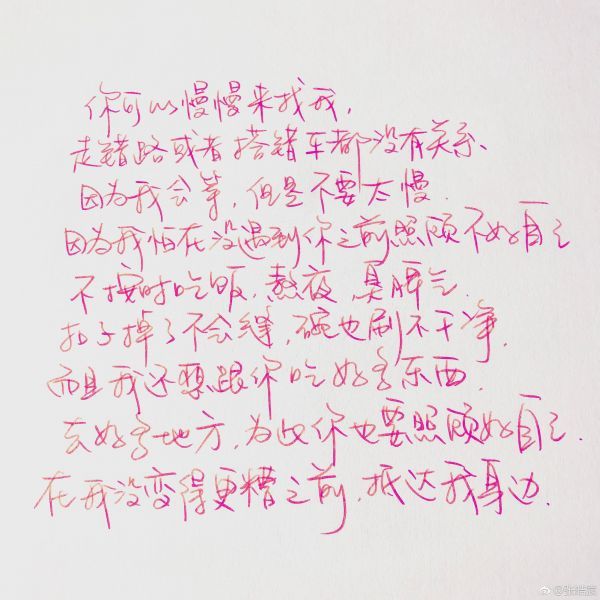 你可以慢慢来找我，
走错路或者搭错车都没有关系、
因为我会等，但是不要太慢．
因为我怕在没遇到你之前照顾不好自己
不按时吃饭．熬夜 臭脾气．
扣子掉了不会缝，碗也刷不干净，
而且我还要跟你吃好多东西．
去好多地方，为此你也要照顾好自己．
在我没变得更糟之前．抵达我身边．
@张皓宸